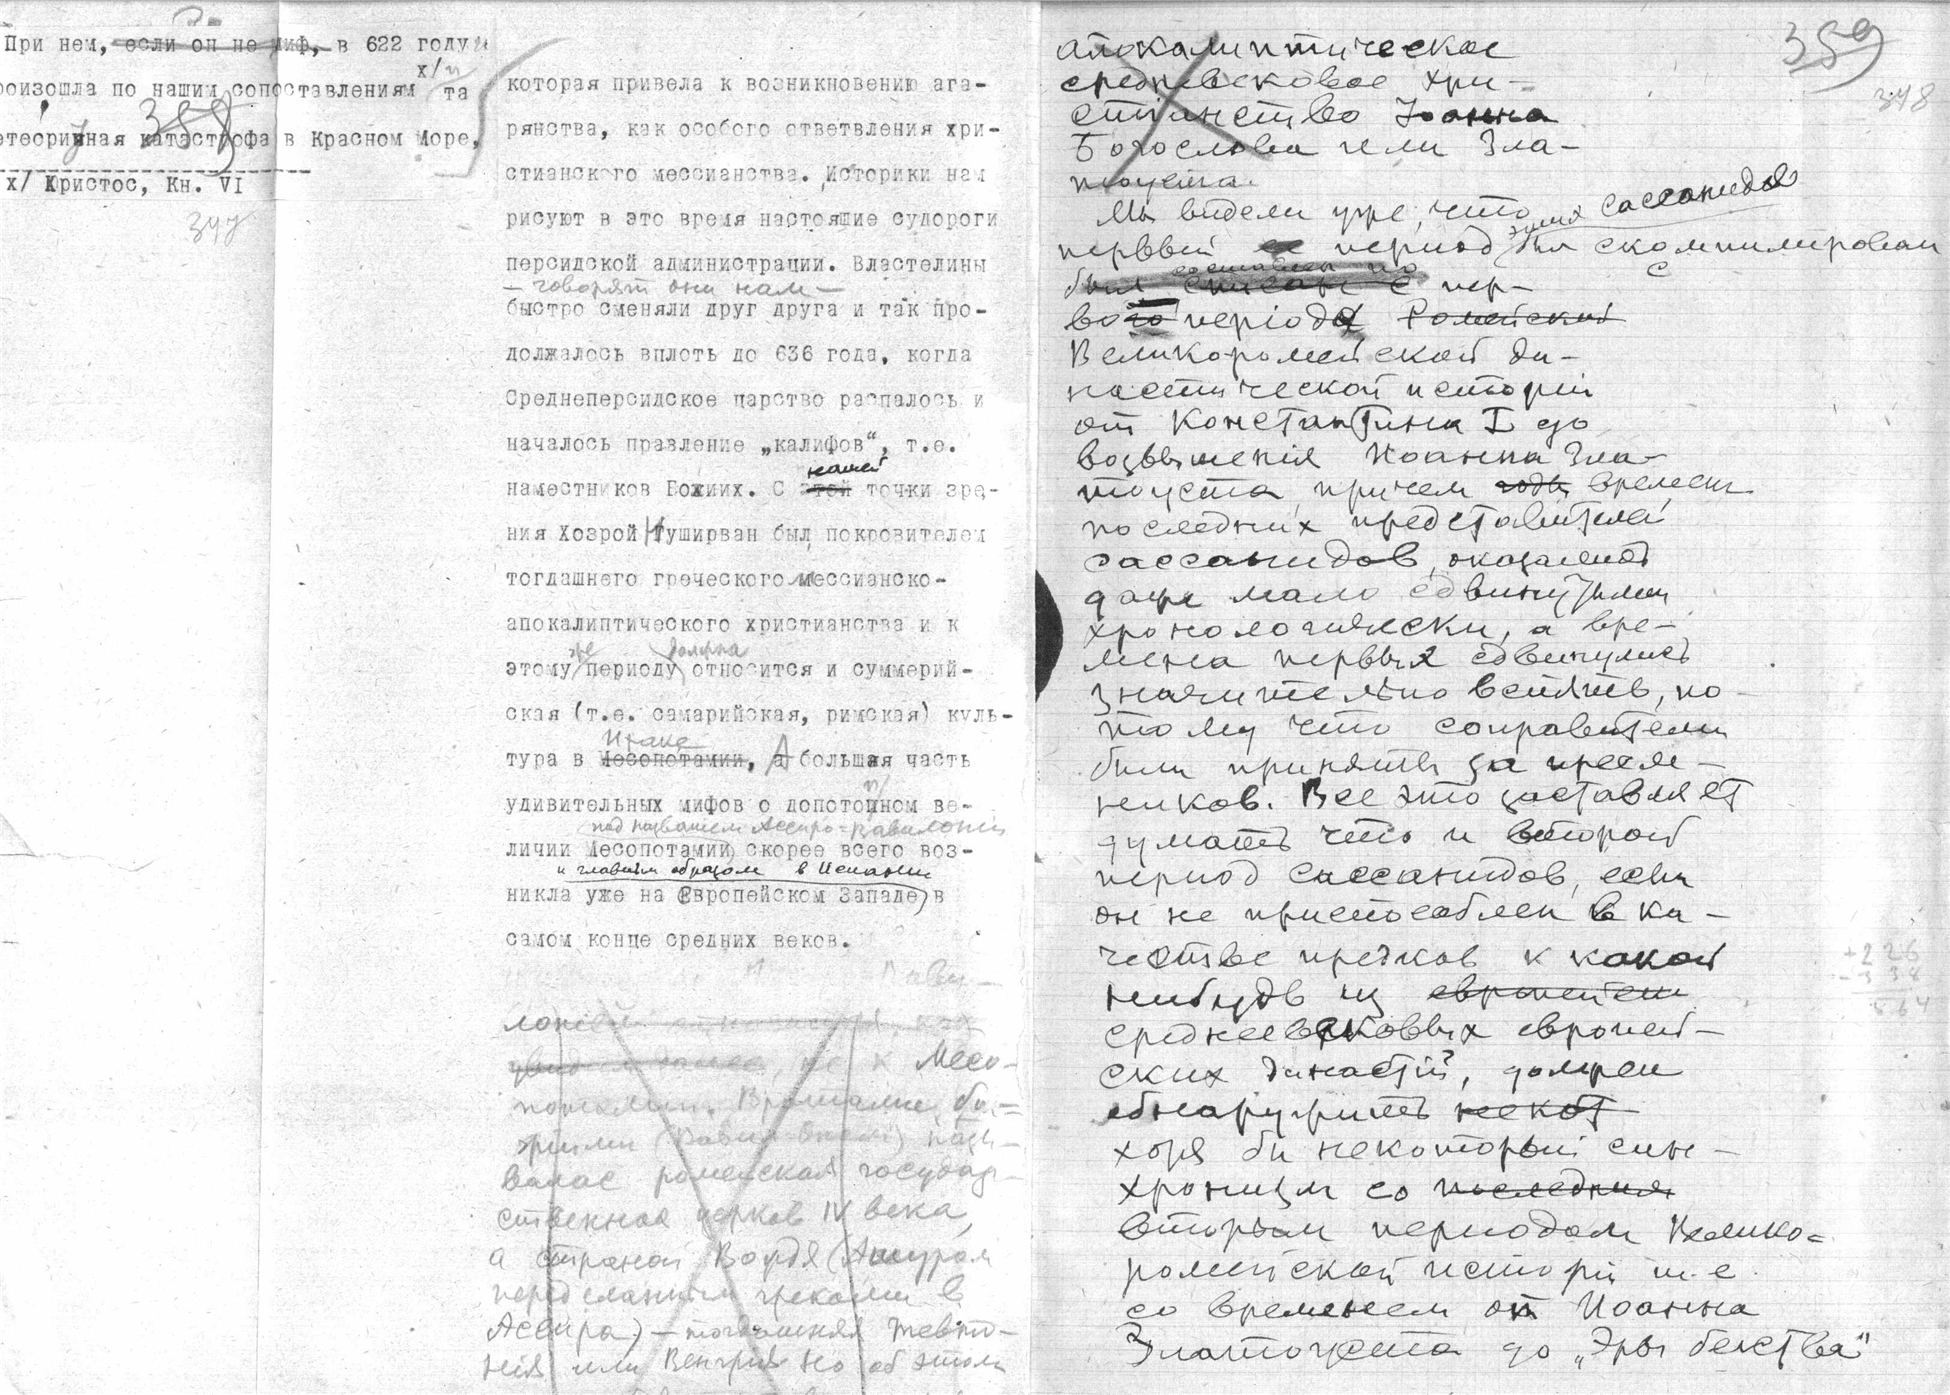 При нем, если он не миф, в 622 году
х/
роизошла по нашим сопоставлениям та
358
етеоритная катастрофа в Красном Море,
х/ Христос, Кн. VI
347
которая привела к возникновению ага-
рянства, как особого ответвления хри-
стианского мессианства. Историки нам
рисуют в это время настоящие судороги
персидской администрации. Властелины
— говорят они нам —
быстро сменяли друг друга и так про-
должалось вплоть до 636 года, когда
Среднеперсидское царство распалось и
началось правление „калифов“, т.е.
нашей
наместников Божиих. С этой точки зре-
ния Хозрой Нуширван был покровителем
тогдашнего греческого мессианско-
апокалиптического христианства и к
же должна
этому периоду относится и суммерий-
ская (т.е. самарийская, римская) куль-
Ираке
тура в Месопотамии, А большая часть
удивительных мифов о допотопном ве-
под названием Ассиро-Вавилонии
личии Месопотамии скорее всего воз-
и главным образом в Испании
никла уже на Европейском Западе, в
самом конце средних веков.
не к Месо-
потамии.
валас ромейская государ-
ственная церков IV века,
а страной Вождя (Ашуром
переделанным греками в
Ассира) — тогдашняя
или Венгрия но об этом
359
348
апокалиптическое
средневековое хри-
стіянство Іоанна
Богослова или Зла-
тоуста.
Мы видели уже, что этих сассанидов
первый период был скомпилирован
составлен по
был списан с пер-
вого періода Ромейской
Великоромейской ди-
настической исторіи
от Константина I до
возвышенія Иоанна Зла-
тоуста, причем годы времена
последних представителей
сассанидов, оказались
даже мало сдвинутыми
хронологически, а вре-
мена первых сдвинулись
значительно вспять, по-
тому что соправители
были приняты за преем-
ников. Все это заставляет
думать что и второй
период сассанидов, если
он не приспособлен в ка-
честве предков к какой
нибудь из европейских
среднеевековых европей-
ских династій, должен
обнаружить некот
хотя бы некоторый син-
хронизм со последния
вторым периодом Велико-
ромейской исторіи т.е.
со временем от Иоанна
Златоуста до „Эры бегства“
+226
-338
564